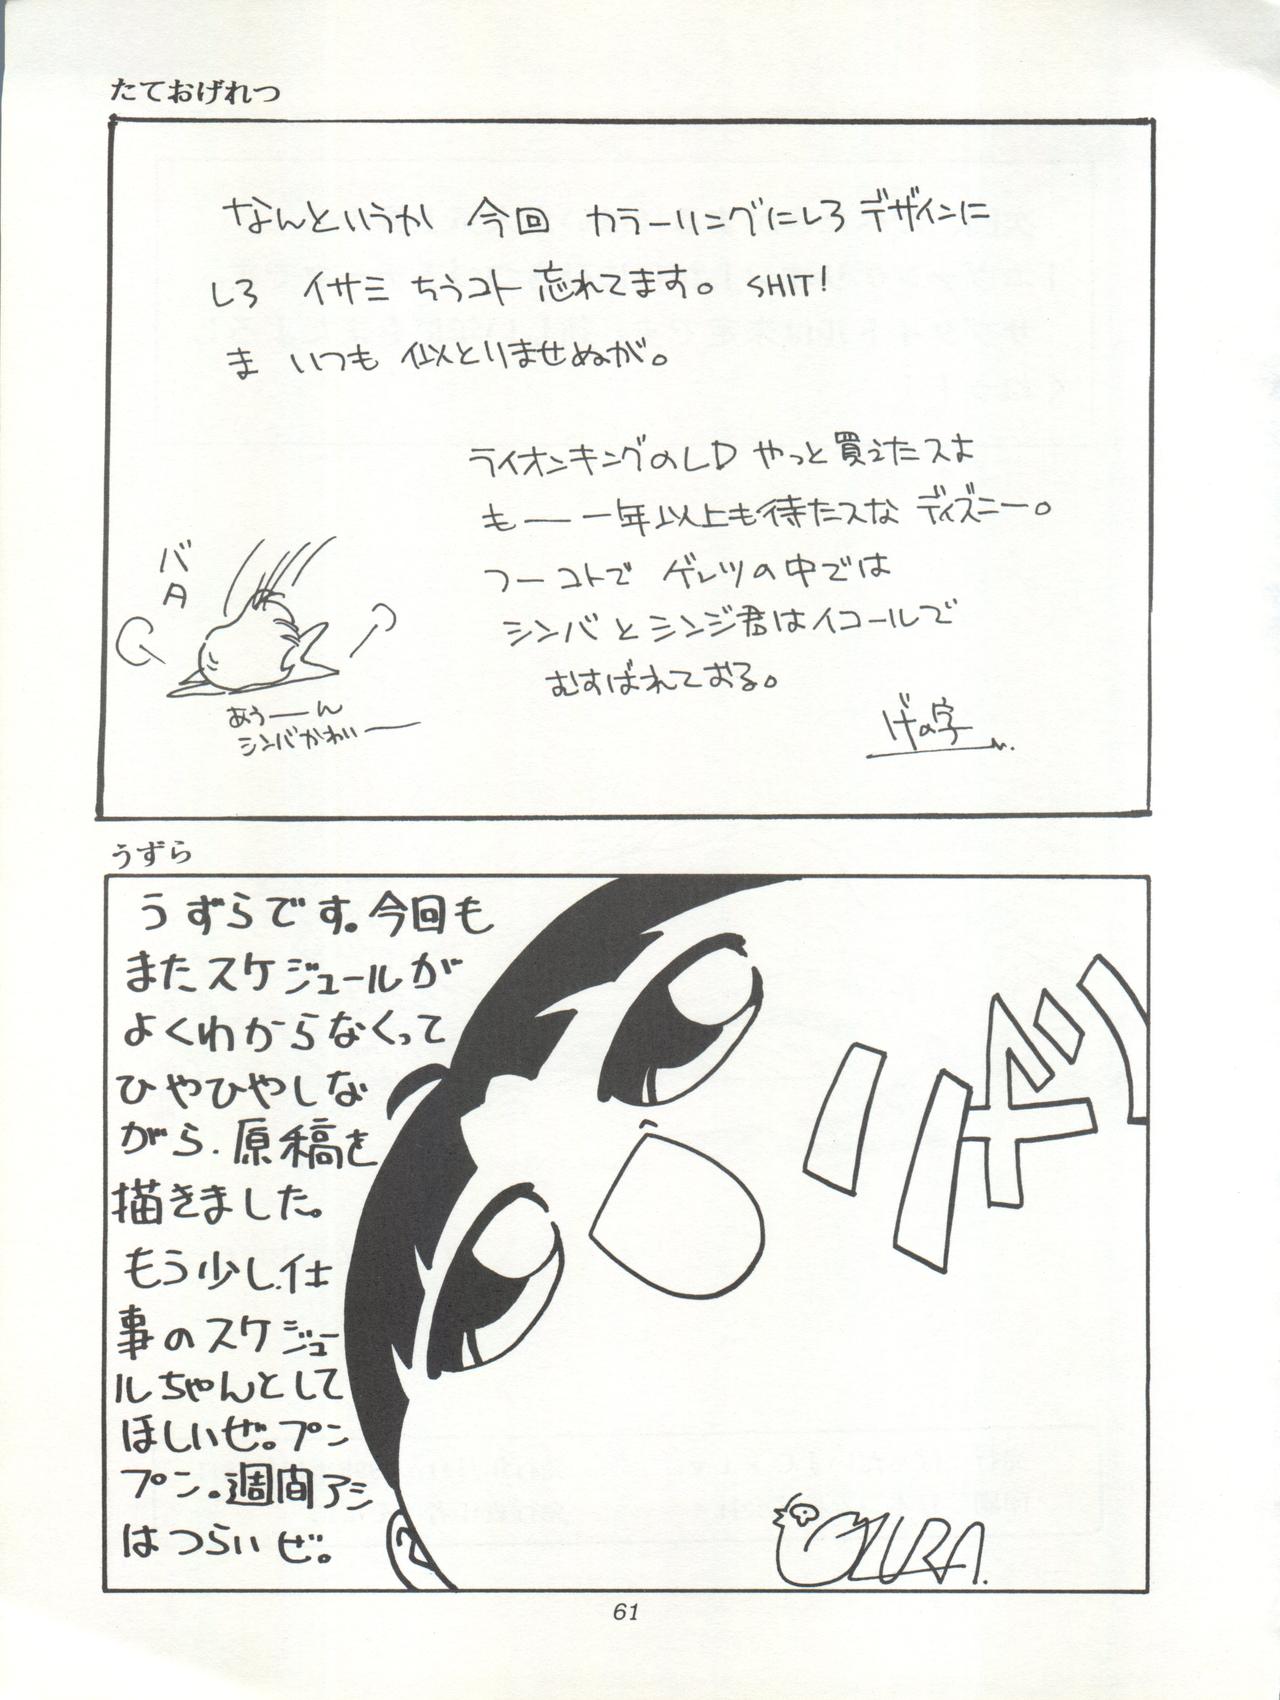 たておげれつ
なんというか 今回 カラーリングにしろ デザインに
しろ イサミ ちうコト 忘れてます。 SHIT!
ま いつも 似とりませぬが。
ライオンキングのLD やっと買えたスよ
もー 一年以上も待たスな ディズニー。
つーコトで ゲレツの中では
シンバとシンジ君はイコールで
むすばれておる。
げの字
バタ
あぅーん
シンバかわいー
うずら
うずらです。今回も
またスケジュールが
よくわからなくって
ひやひやしな
がら、原稿を
描きました。
もう少し、仕
事のスケジュー
ルちゃんとして
ほしいぜ。プン
プン。週間アシ
はつらいぜ。
61